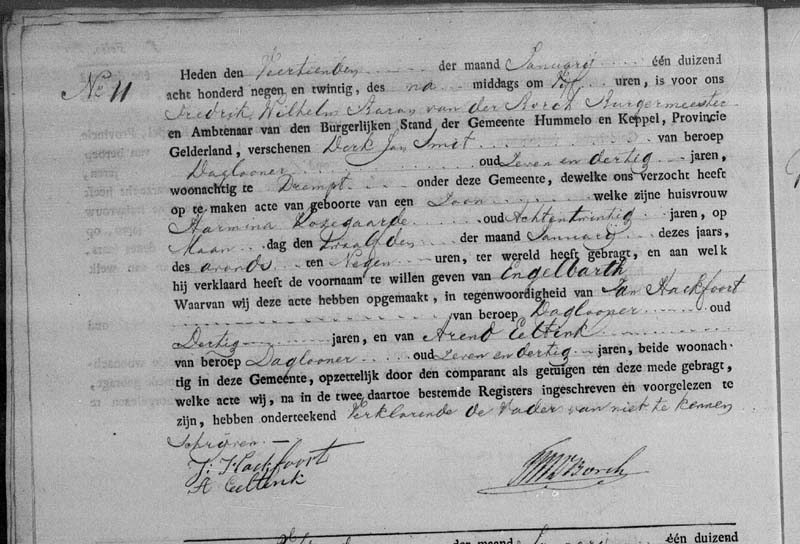 No 11
Heden den Veertienden der maand January één duizend
acht honderd negen en twintig, des na middags om Vijf uren, is voor ons
Fredrik Wilhelm Baron van der Borch Burgermeester
en Ambtenaar van den Burgerlijken Stand der Gemeente Hummelo en Keppel, Provincie
Gelderland, verschenen Derk Jan Smit van beroep
Daglooner oud Zeven en dertig jaren,
woonachtig te Drempt onder deze Gemeente, dewelke ons verzocht heeft
op te maken acte van geboorte van een Zoon welke zijne huisvrouw
Harmina Rosegaarde oud Achtentwintig jaren, op
Maan dag den twaalfden der maand January dezes jaars,
des avonds ten Negen uren, ter wereld heeft gebragt, en aan welk
hij verklaard heeft de voornaam te willen geven van Engelbarth
Waarvan wij deze acte hebben opgemaakt, in tegenwoordigheid van Jan Hackfoort
van beroep Daglooner oud
Dertig jaren, en van Arend Eeltink
van beroep Daglooner oud Zeven en dertig jaren, beide woonach-
tig in deze Gemeente, opzettelijk door den comparant als getuigen ten deze mede gebragt,
welke acte wij, na in de twee daartoe bestemde Registers ingeschreven en voorgelezen te
zijn, hebben onderteekend Verklarende de Vader van niet te kennen
schrijven.
J: Hackfoort
A Eeltink
Borch
der maand één duizend